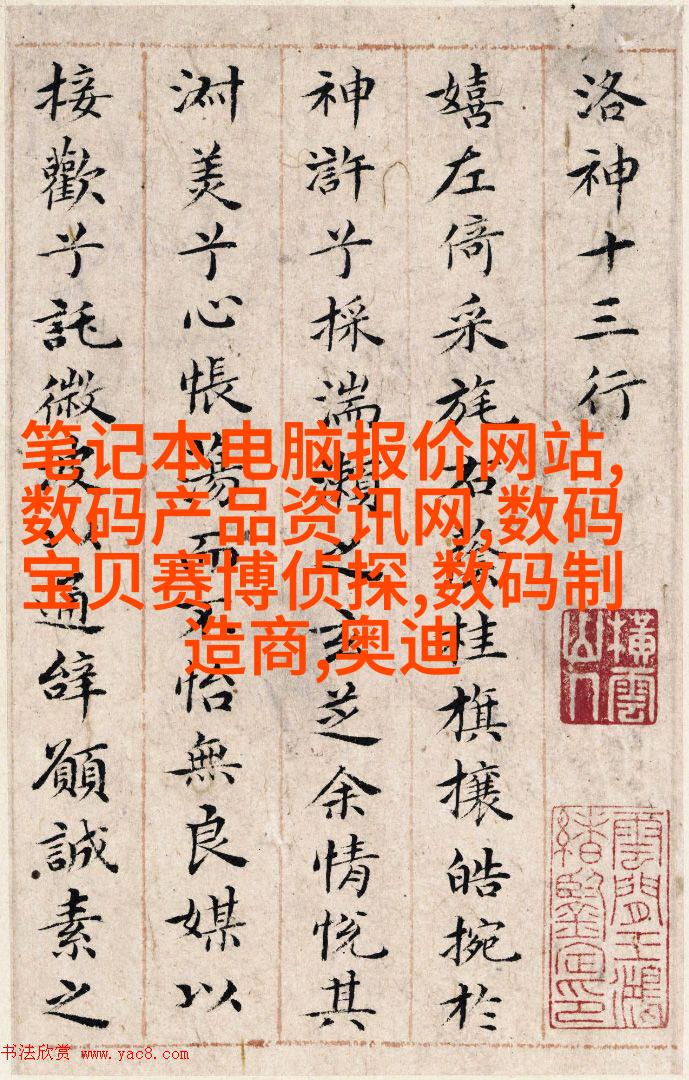 洛神十三行
嬉左倚采旄右蔭桂旗攘皓捥於
神許兮採湍瀨之玄芝余情悅其
淑美兮心帳蕩而不怡無良媒以
接歡兮託微波以通辭願誠素之
橫雲山人
雲間王鴻緒鑒定印
笔记本电脑报价网站,
数码产品资讯网,数码
宝贝赛博侦探,数码制
造商,奥迪
书法欣赏 www.yac8.com